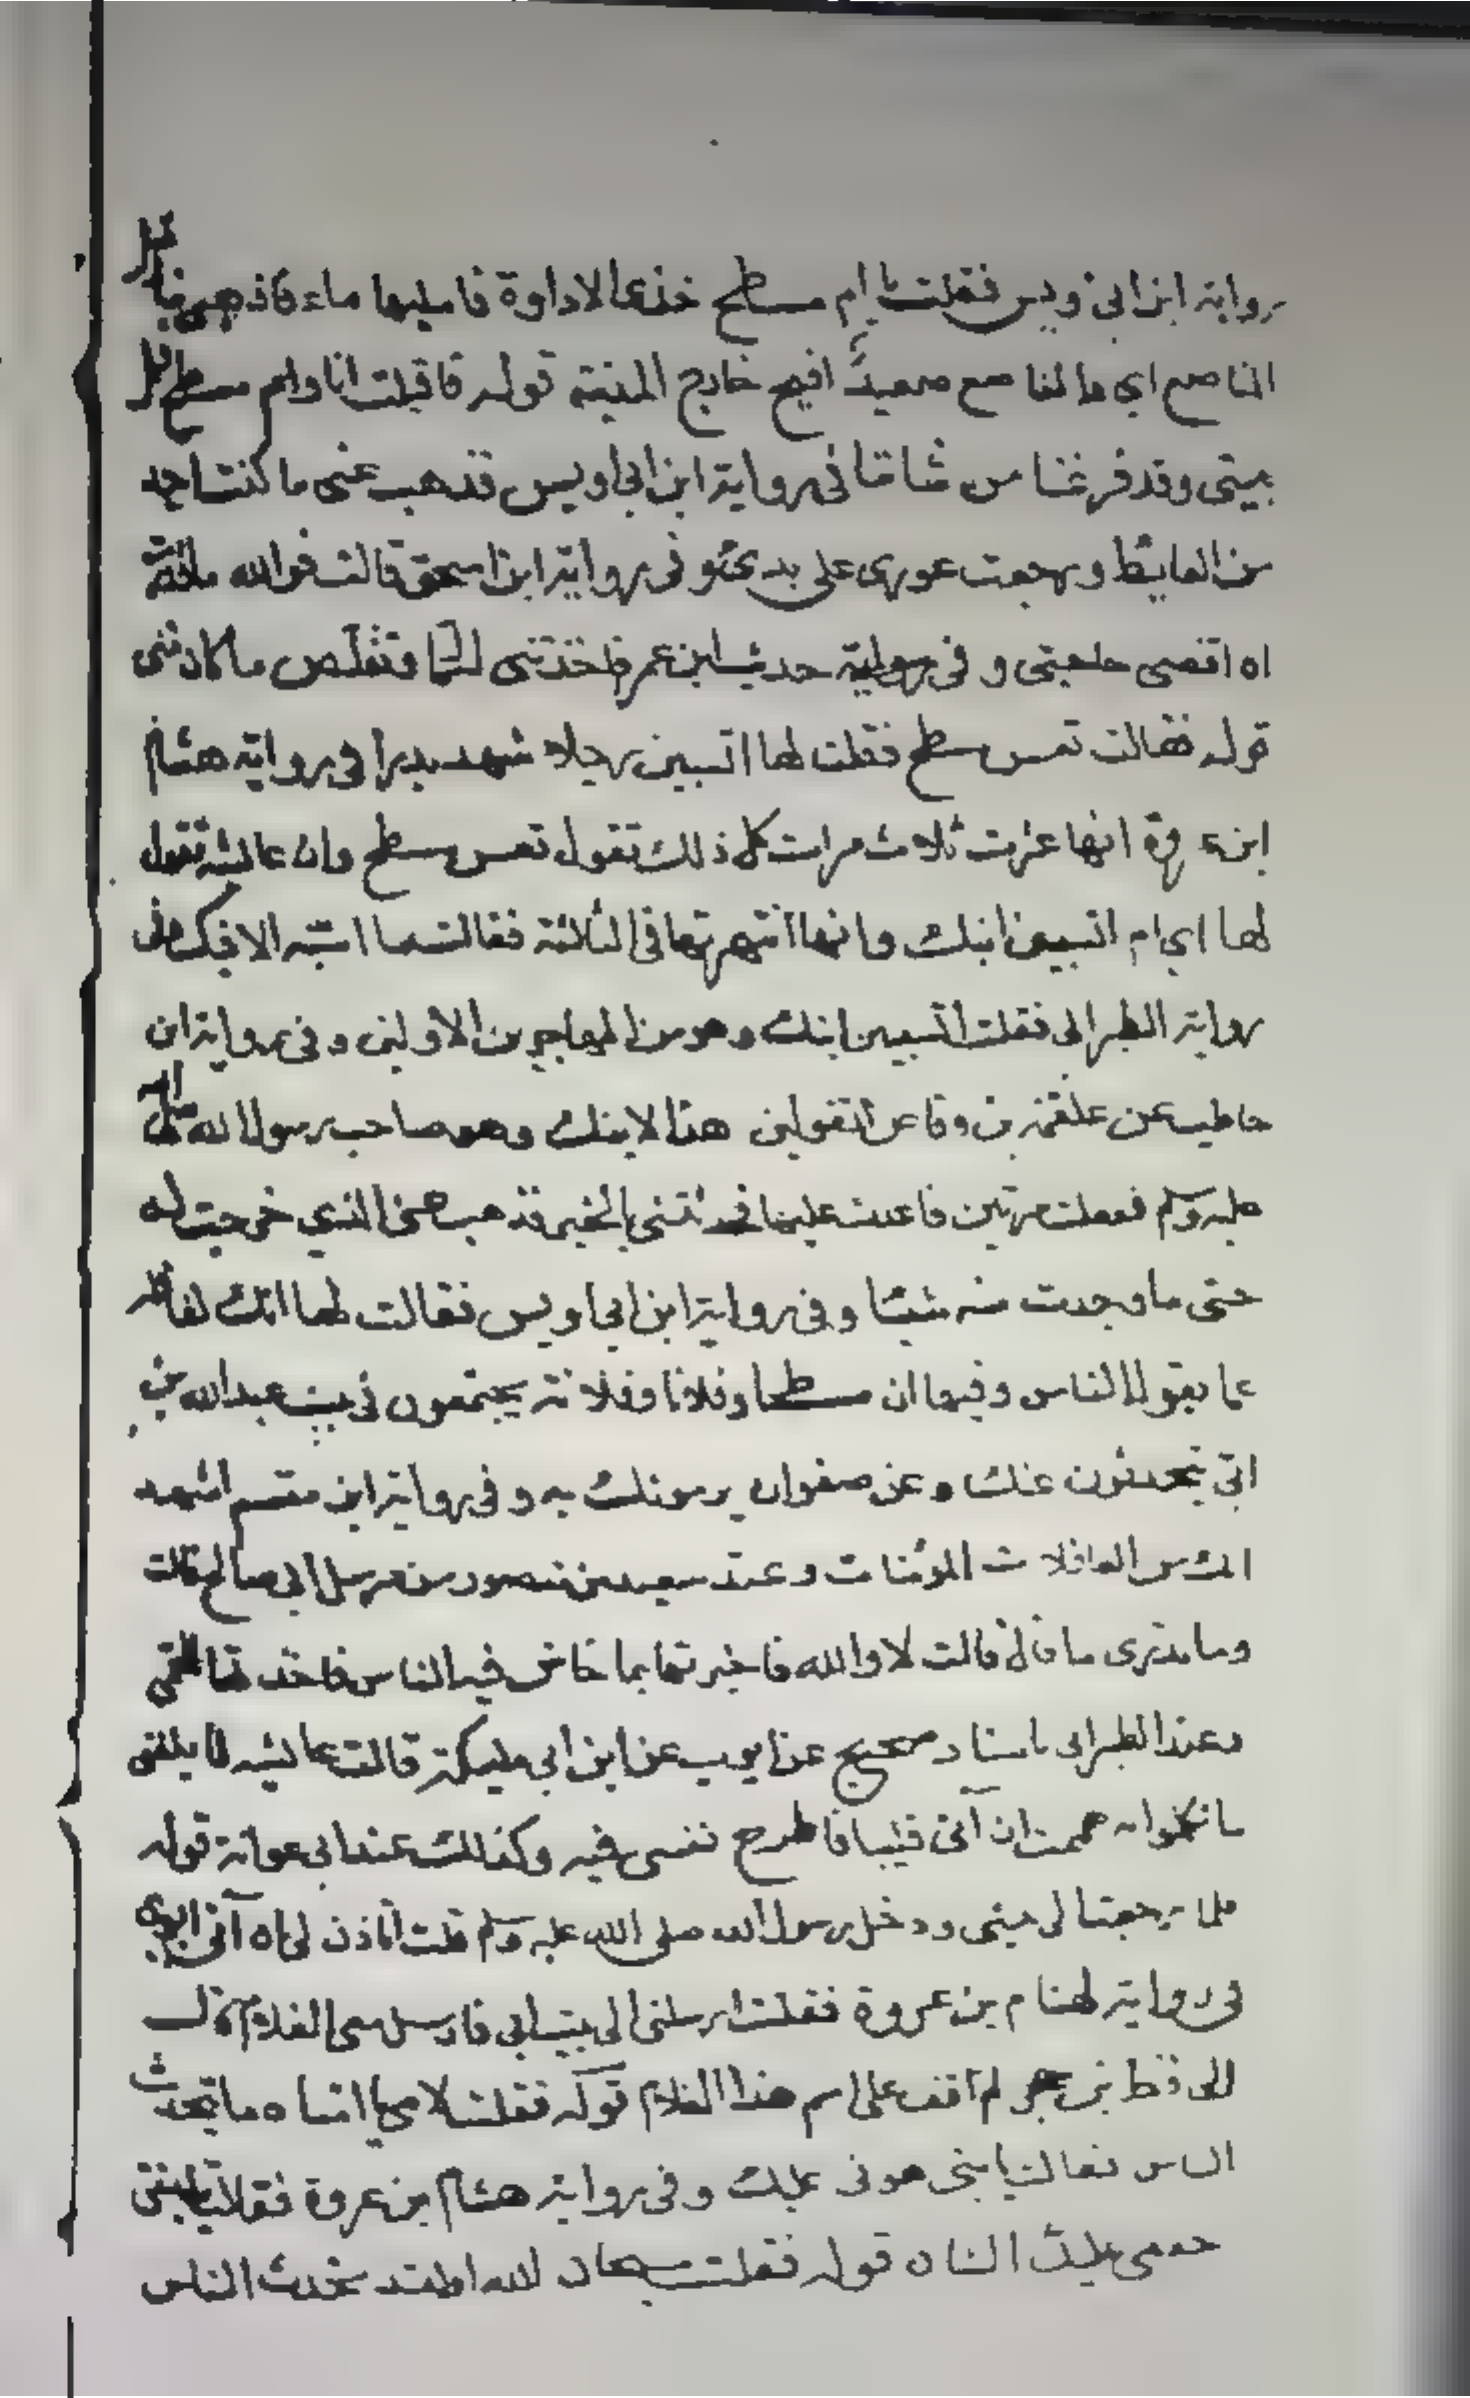 رواية ابن ابي ويس فقلت يا ام مسطح خذي الاداوة فامليها ماء فاذهبي بنا قبل
المناصع اي والمناصع صعيد افيح خارج المدينة قوله فاقبلت انا وام مسطح قبل
بيتي وقد فرغنا من شاننا في رواية ابن ابي اويس فذهب عني ما كنت اجد
من الغايط ورجعت عودي على بدئي وفي رواية ابن اسحق قالت فوالله ما قدرت
اه اقضي حاجتي و في رواية حديث ابن عمر فاخذتني الحمى وتقلص ما كان مني
قوله فقالت تعس مسطح فقلت لها اتسبين رجلا شهد بدرا في رواية هشام
ابن عروة انها عثرت ثلاث مرات كل ذلك تقول تعس مسطح وان عائشة تقول
لها اي ام اتسبين ابنك وانها انتهرتها في الثالثة فقالت ما اسبه الا فيك وفي
رواية الطبراني فقلت اتسبين ابنك وهو من المهاجرين الاولين وفي رواية ابن
حاطب عن علقمة بن وقاص اتقولين هذا لابنك وهو صاحب رسول الله صلى الله
عليه وسلم ففعلت مرتين فاعدت عليها فحدثتني بالخبر فذهب عني الذي خرجت له
حتى ما وجدت منه شيئا وفي رواية ابن ابي اويس فقالت لها انك لغافلة
عما يقول الناس وفيها ان مسطحا وفلانا وفلانة يجتمعون في بيت عبدالله بن
ابي يتحدثون عنك وعن صفوان يرمونك به وفي رواية ابن مقسم اشهد
انك من الغافلات المؤمنات وعند سعيد بن منصور من مرسل ابي صالح فقالت
وما تدري ما قال قالت لا والله فاخبرتها بما خاض فيه الناس فاخذتها الحمى
وعند الطبراني باسناد صحيح عن ايوب عن ابن ابي مليكة قالت عائشة لما بلغني
ما تكلموا به هممت ان آتي قليبا فاطرح نفسي فيه وكذلك عند ابي عوانة قوله
فلما رجعت الى بيتي ودخل رسول الله صلى الله عليه وسلم قلت اتاذن لي ان آتي ابوي
في رواية لهشام بن عروة فقلت ارسلني الى بيت ابي فارسل معي الغلام قال
الحافظ بن حجر لم اقف على اسم هذا الغلام قوله فقلت لامي يا امتاه ما يتحدث
الناس فقالت يا بني هوني عليك وفي رواية هشام بن عروة فقالت يا بنتي
خففي عليك الشان قوله فقلت سبحان الله اولقد تحدث الناس